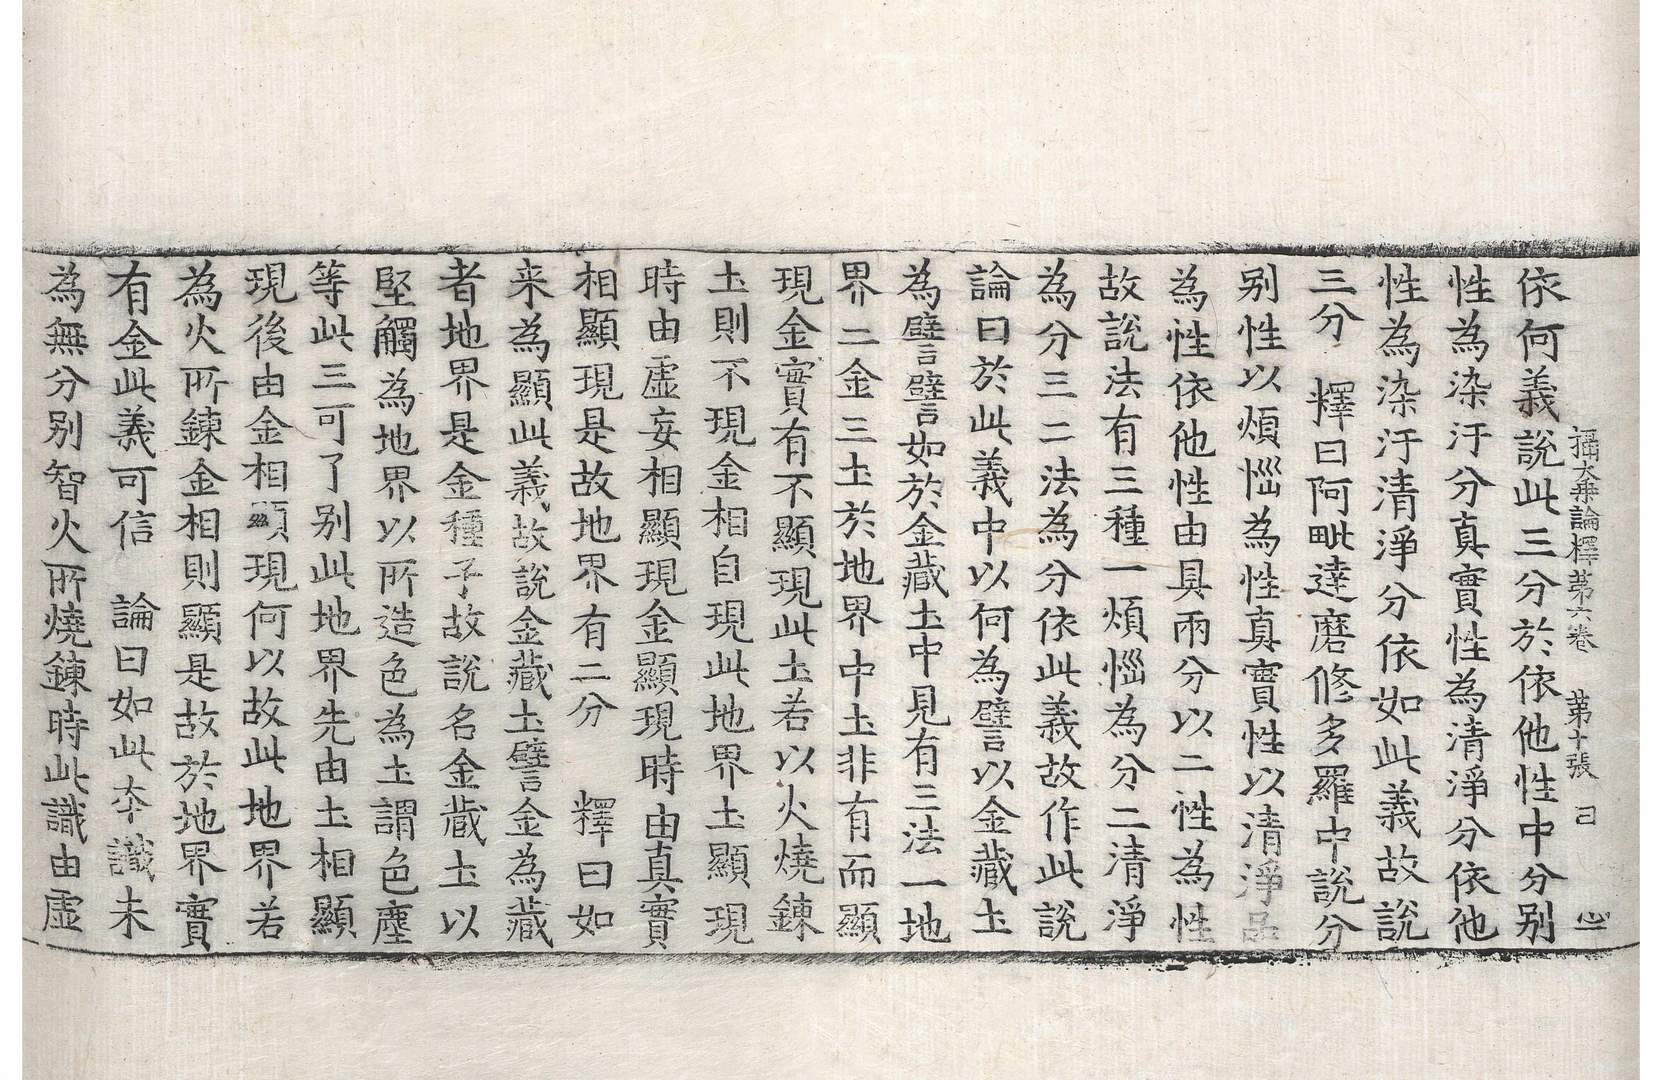 攝大乗論釋苐六卷 苐十張 曰
依何義說此三分於依他性中分别
性為染汙分真實性為清淨分依他
性為染汙清淨分依如此義故說
三分 釋曰阿毗達磨修多羅中說分
别性以煩惱為性真實性以清淨品
為性依他性由具兩分以二性為性
故說法有三種一煩惱為分二清淨
為分三二法為分依此義故作此說
論曰於此義中以何為譬以金藏土
為譬譬如於金藏土中見有三法一地
界二金三土於地界中土非有而顯
現金實有不顯現此土若以火燒鍊
土則不現金相自現此地界土顯現
時由虛妄相顯現金顯現時由真實
相顯現是故地界有二分 釋曰如
来為顯此義故說金藏土譬金為藏
者地界是金種子故說名金藏土以
堅觸為地界以所造色為土謂色塵
等此三可了别此地界先由土相顯
現後由金相顯現何以故此地界若
為火所鍊金相則顯是故於地界實
有金此義可信 論曰如此夲識未
為無分别智火所燒鍊時此識由虛